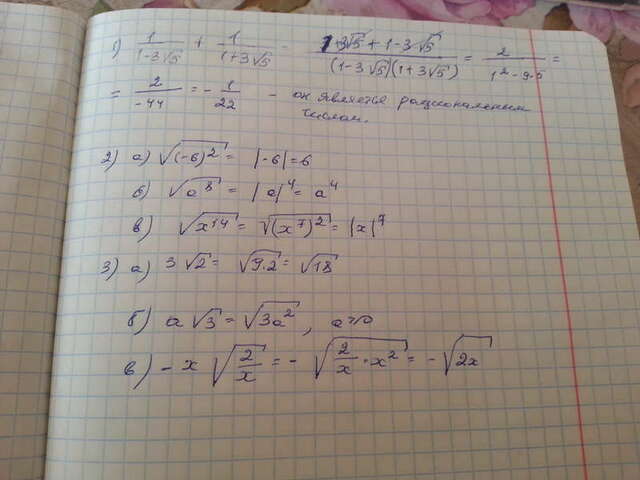 1) 1/(1-3√5) + 1/(1+3√5) - (1+3√5+1-3√5)/((1-3√5)(1+3√5)) = 2/(1²-9·5) =
= 2/-44 = -1/22 - он является рациональным
числом.
2) а) √(-6)² = |-6|=6
б) √a⁸ = |a|⁴= a⁴
в) √x¹⁴ = √(x⁷)² = |x|⁷
3) а) 3√2 = √9·2 = √18
б) a√3 = √3a², a≥0
в) -x √(2/x) = -√(2/x · x²) = -√2x